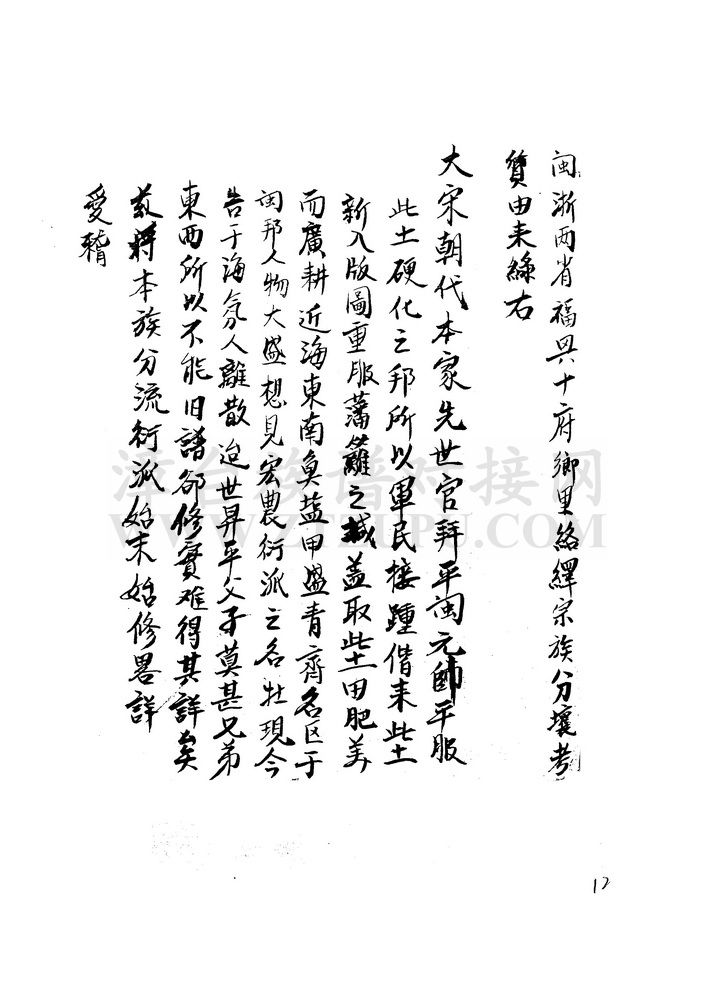 闽浙两省福興十府鄉里絡繹宗族分壤考
質由来綠右
大宋朝代本家先世官拜平闽元帥平服
此土硬化之邦所以軍民接踵偕来此土
新入版圖重服藩籬之城蓋取此土田肥美
而廣耕近海東南魚盐甲盛青齊名区于
闽邦人物大盛想見宏農衍派之名壮現今
告于海氛人離散迨世昇平父子莫甚兄弟
東西所以不能旧譜卻修實难得其詳矣
兹蒋本族分流衍派始末始修畧詳
愛稽
12
津台族谱对接网
WWW.ZTZUPU.COM